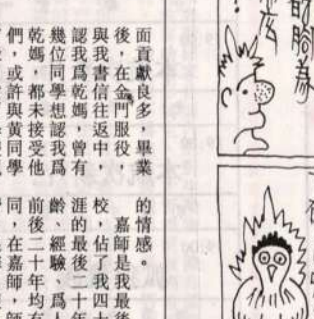 面貢獻良多，畢業
後，在金門服役，
與我書信往返中，
認我爲乾媽，曾有
幾位同學想認我爲
乾媽，都未接受他
們，或許與黃同學
的情感。
嘉師是我最後
校，佔了我四十
涯的最後二十年
齡、經驗、爲人
前後二十年均有
同，在嘉師，師